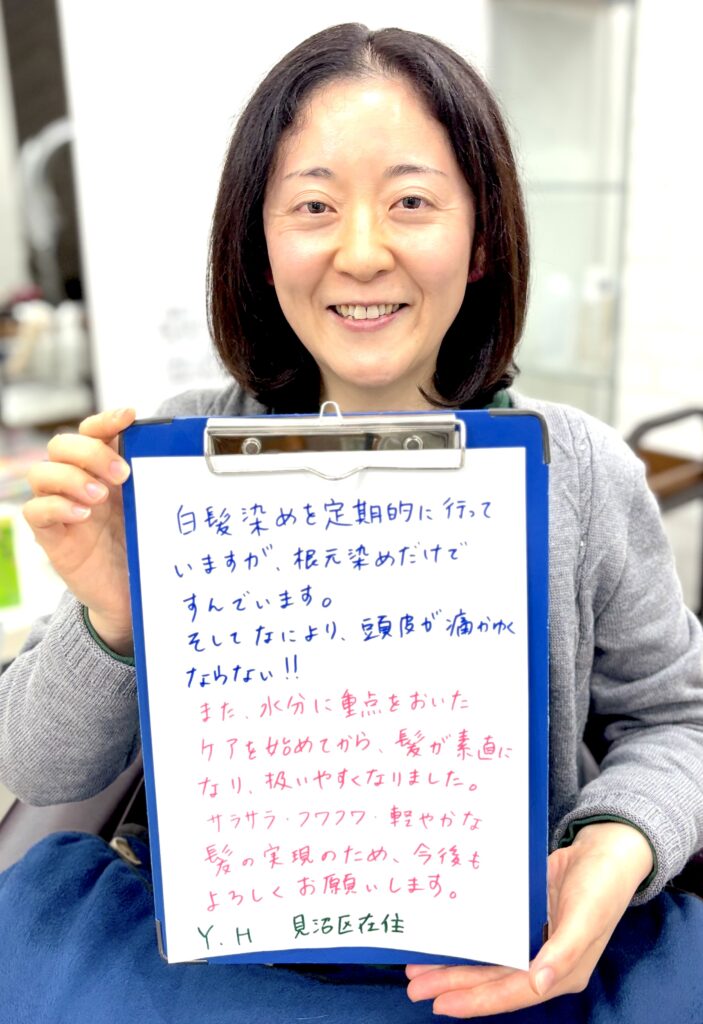 白髪染めを定期的に行って
いますが、根元染めだけで
すんでいます。
そしてなにより、頭皮が痛かゆく
ならない!!
また、水分に重点をおいた
ケアを始めてから、髪が素直に
なり、扱いやすくなりました。
サラサラ・フワフワ・軽やかな
髪の実現のため、今後も
よろしくお願いします。
Y.H 見沼区在住